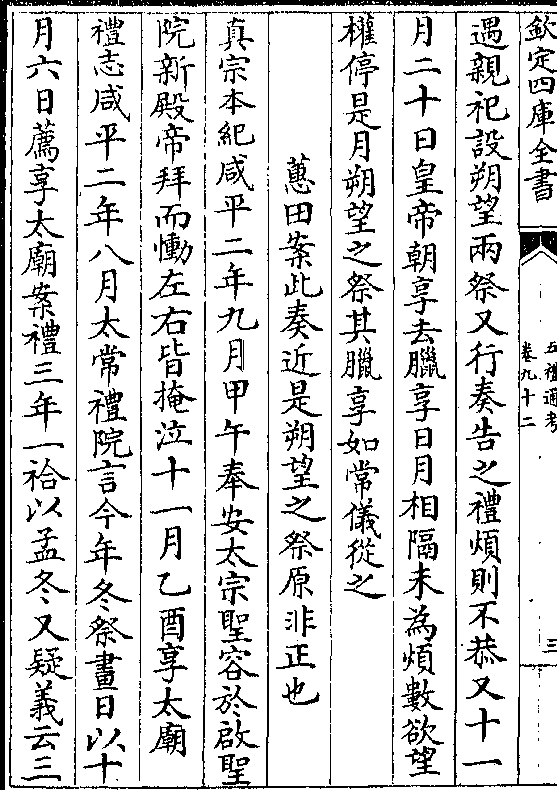 欽定四庫全書
五禮通考
卷九十二
三
遇親祀設朔望兩祭又行奏告之禮煩則不恭又十一
月二十日皇帝朝享去臘享日月相隔未為煩數欲望
權停是月朔望之祭其臘享如常儀從之
蕙田案此奏近是朔望之祭原非正也
真宗本紀咸平二年九月甲午奉安太宗聖容於啟聖
院新殿帝拜而慟左右皆掩泣十一月乙酉享太廟
禮志咸平二年八月太常禮院言今年冬祭畫日以十
月六日薦享太廟案禮三年一祫以孟冬又疑義云三